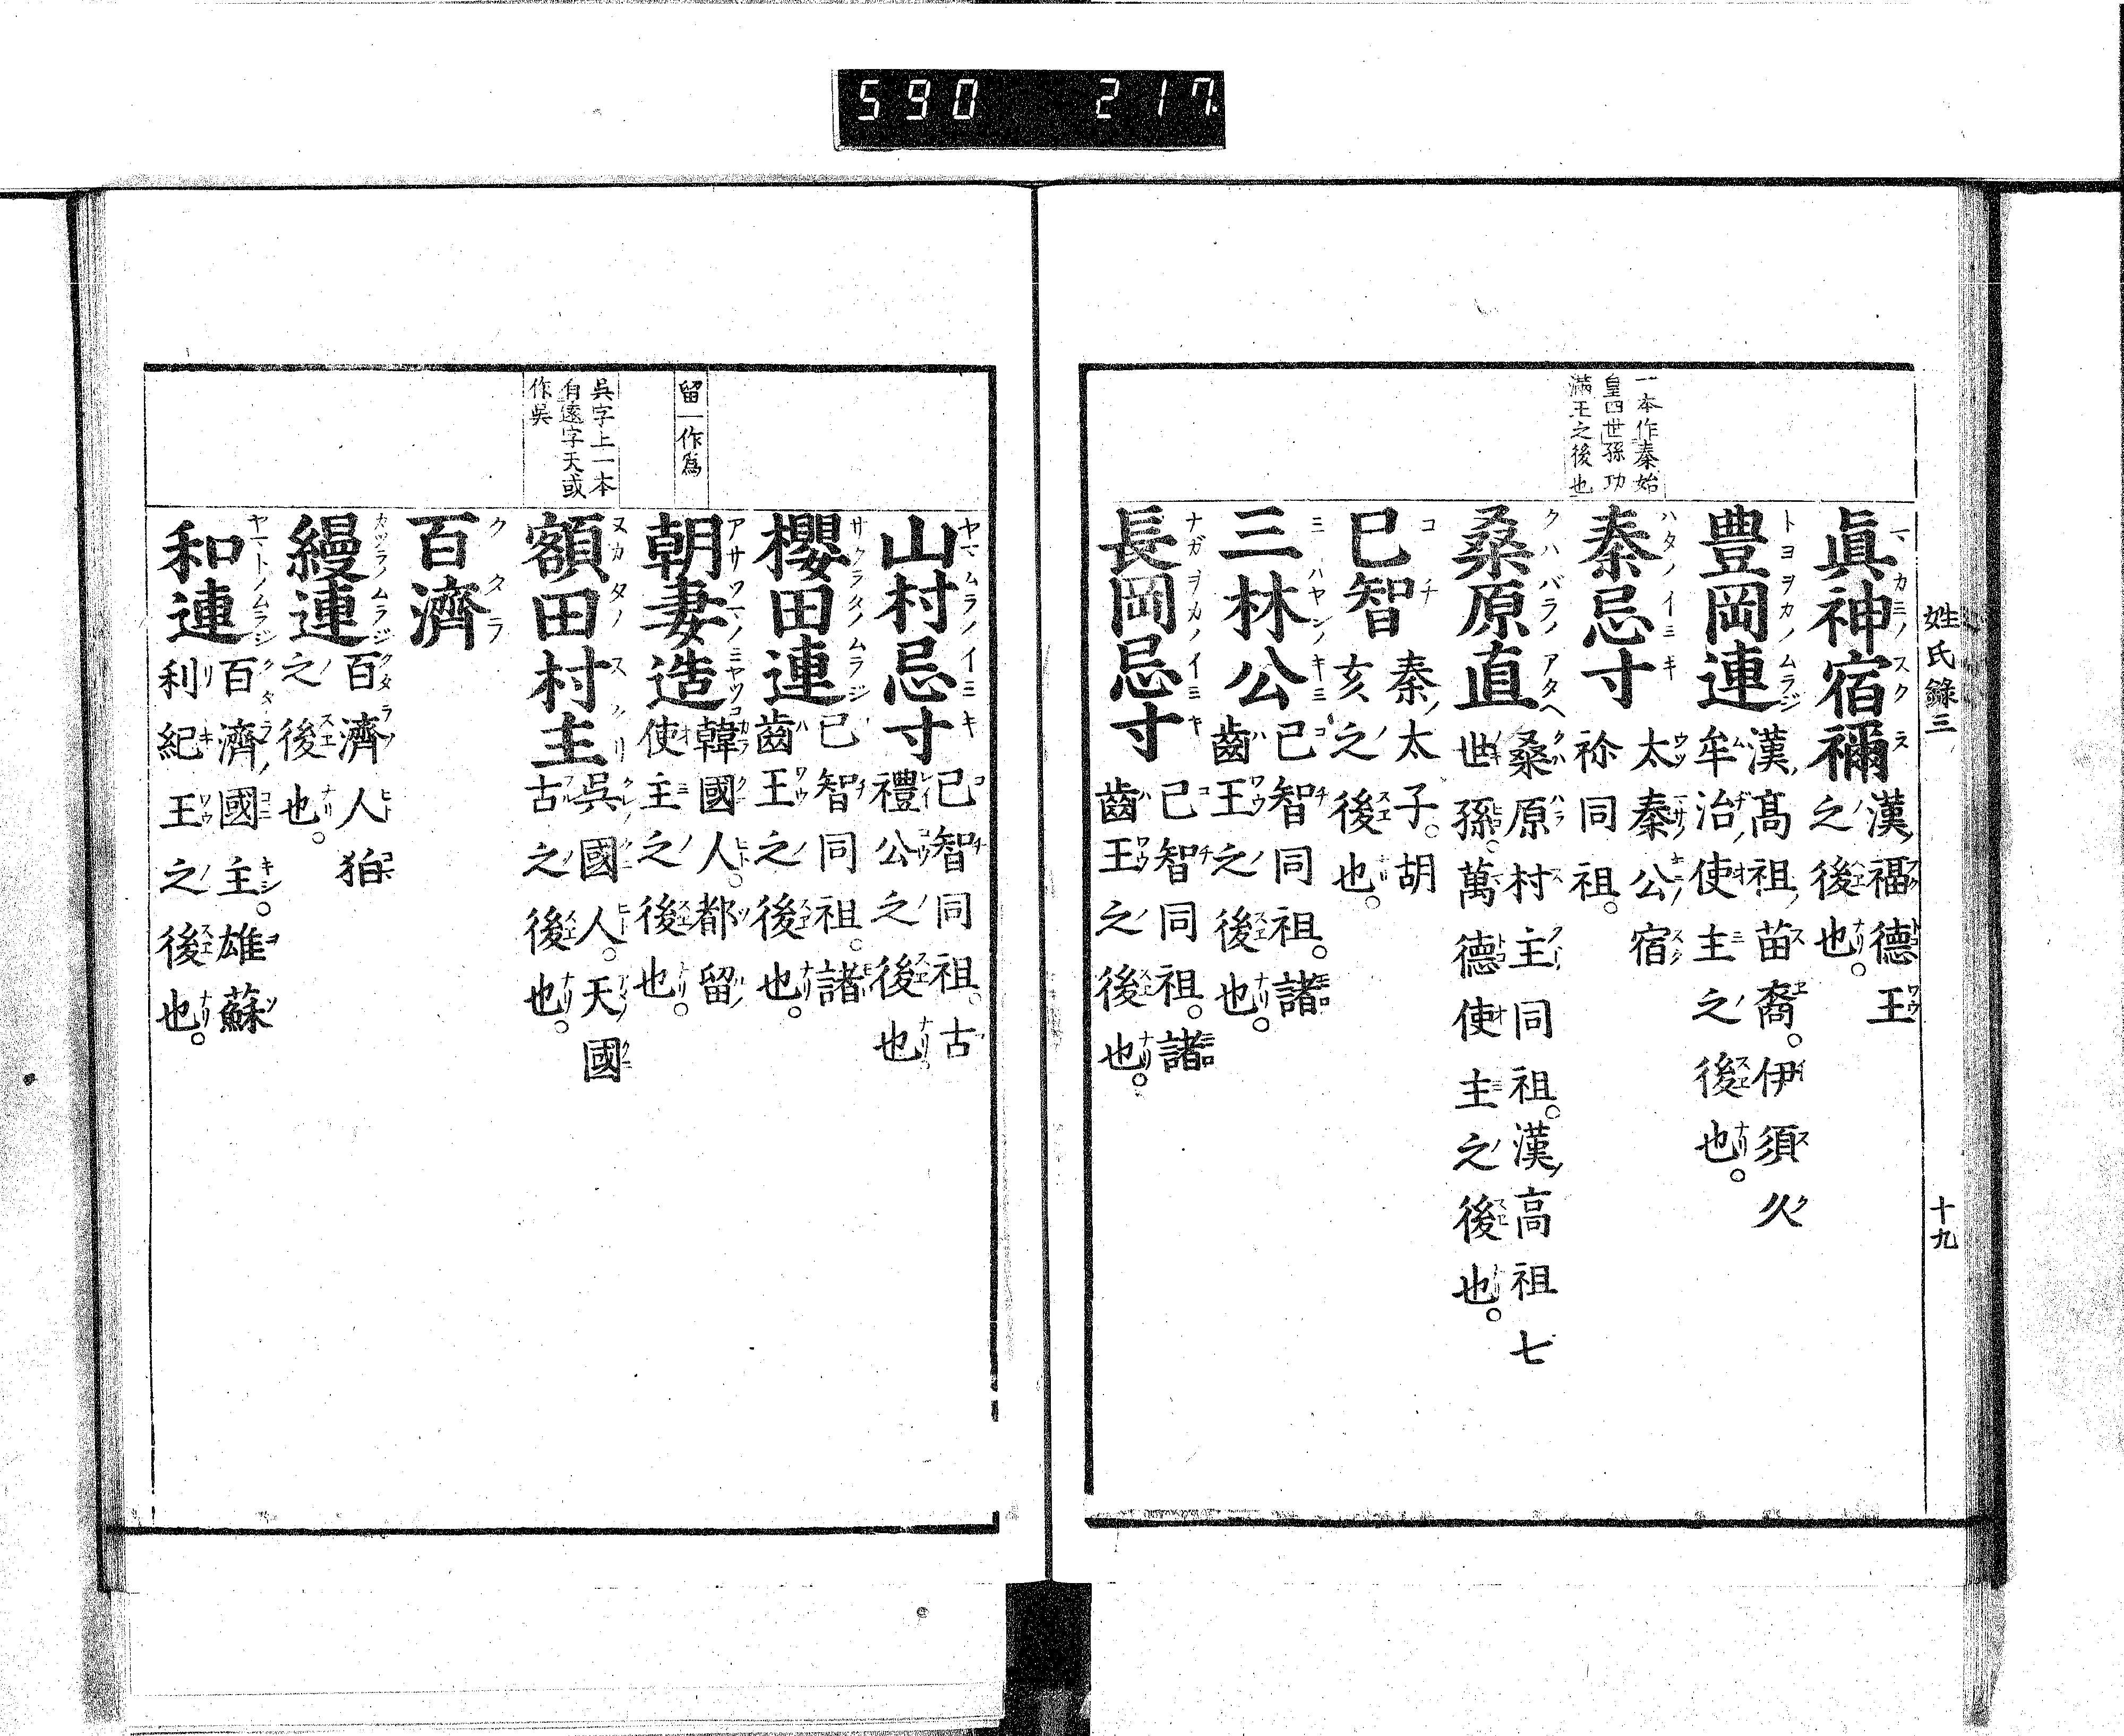 590 217
姓氏錄三
十九
一本作秦始
皇四世孫功
滿王之後也
眞神宿禰
漢福德王
之後也。
豊岡連
漢髙祖苗裔。伊須久
牟治使主之後也。
秦忌寸
太秦公宿
祢同祖。
桑原直
桑原村主同祖。漢高祖七
世孫。萬德使主之後也。
己智
秦太子。胡
亥之後也。
三林公
己智同祖。諸
齒王之後也。
長岡忌寸
己智同祖。諸
齒王之後也。
留一作爲
吳字上一本
有遠字天或
作吳
山村忌寸
己智同祖。古
禮公之後也。
櫻田連
己智同祖。諸
齒王之後也。
朝妻造
韓國人。都留
使主之後也。
額田村主
吳國人。天國
古之後也。
百濟
縵連
百濟人狛
之後也。
和連
百濟國主。雄蘇
利紀王之後也。